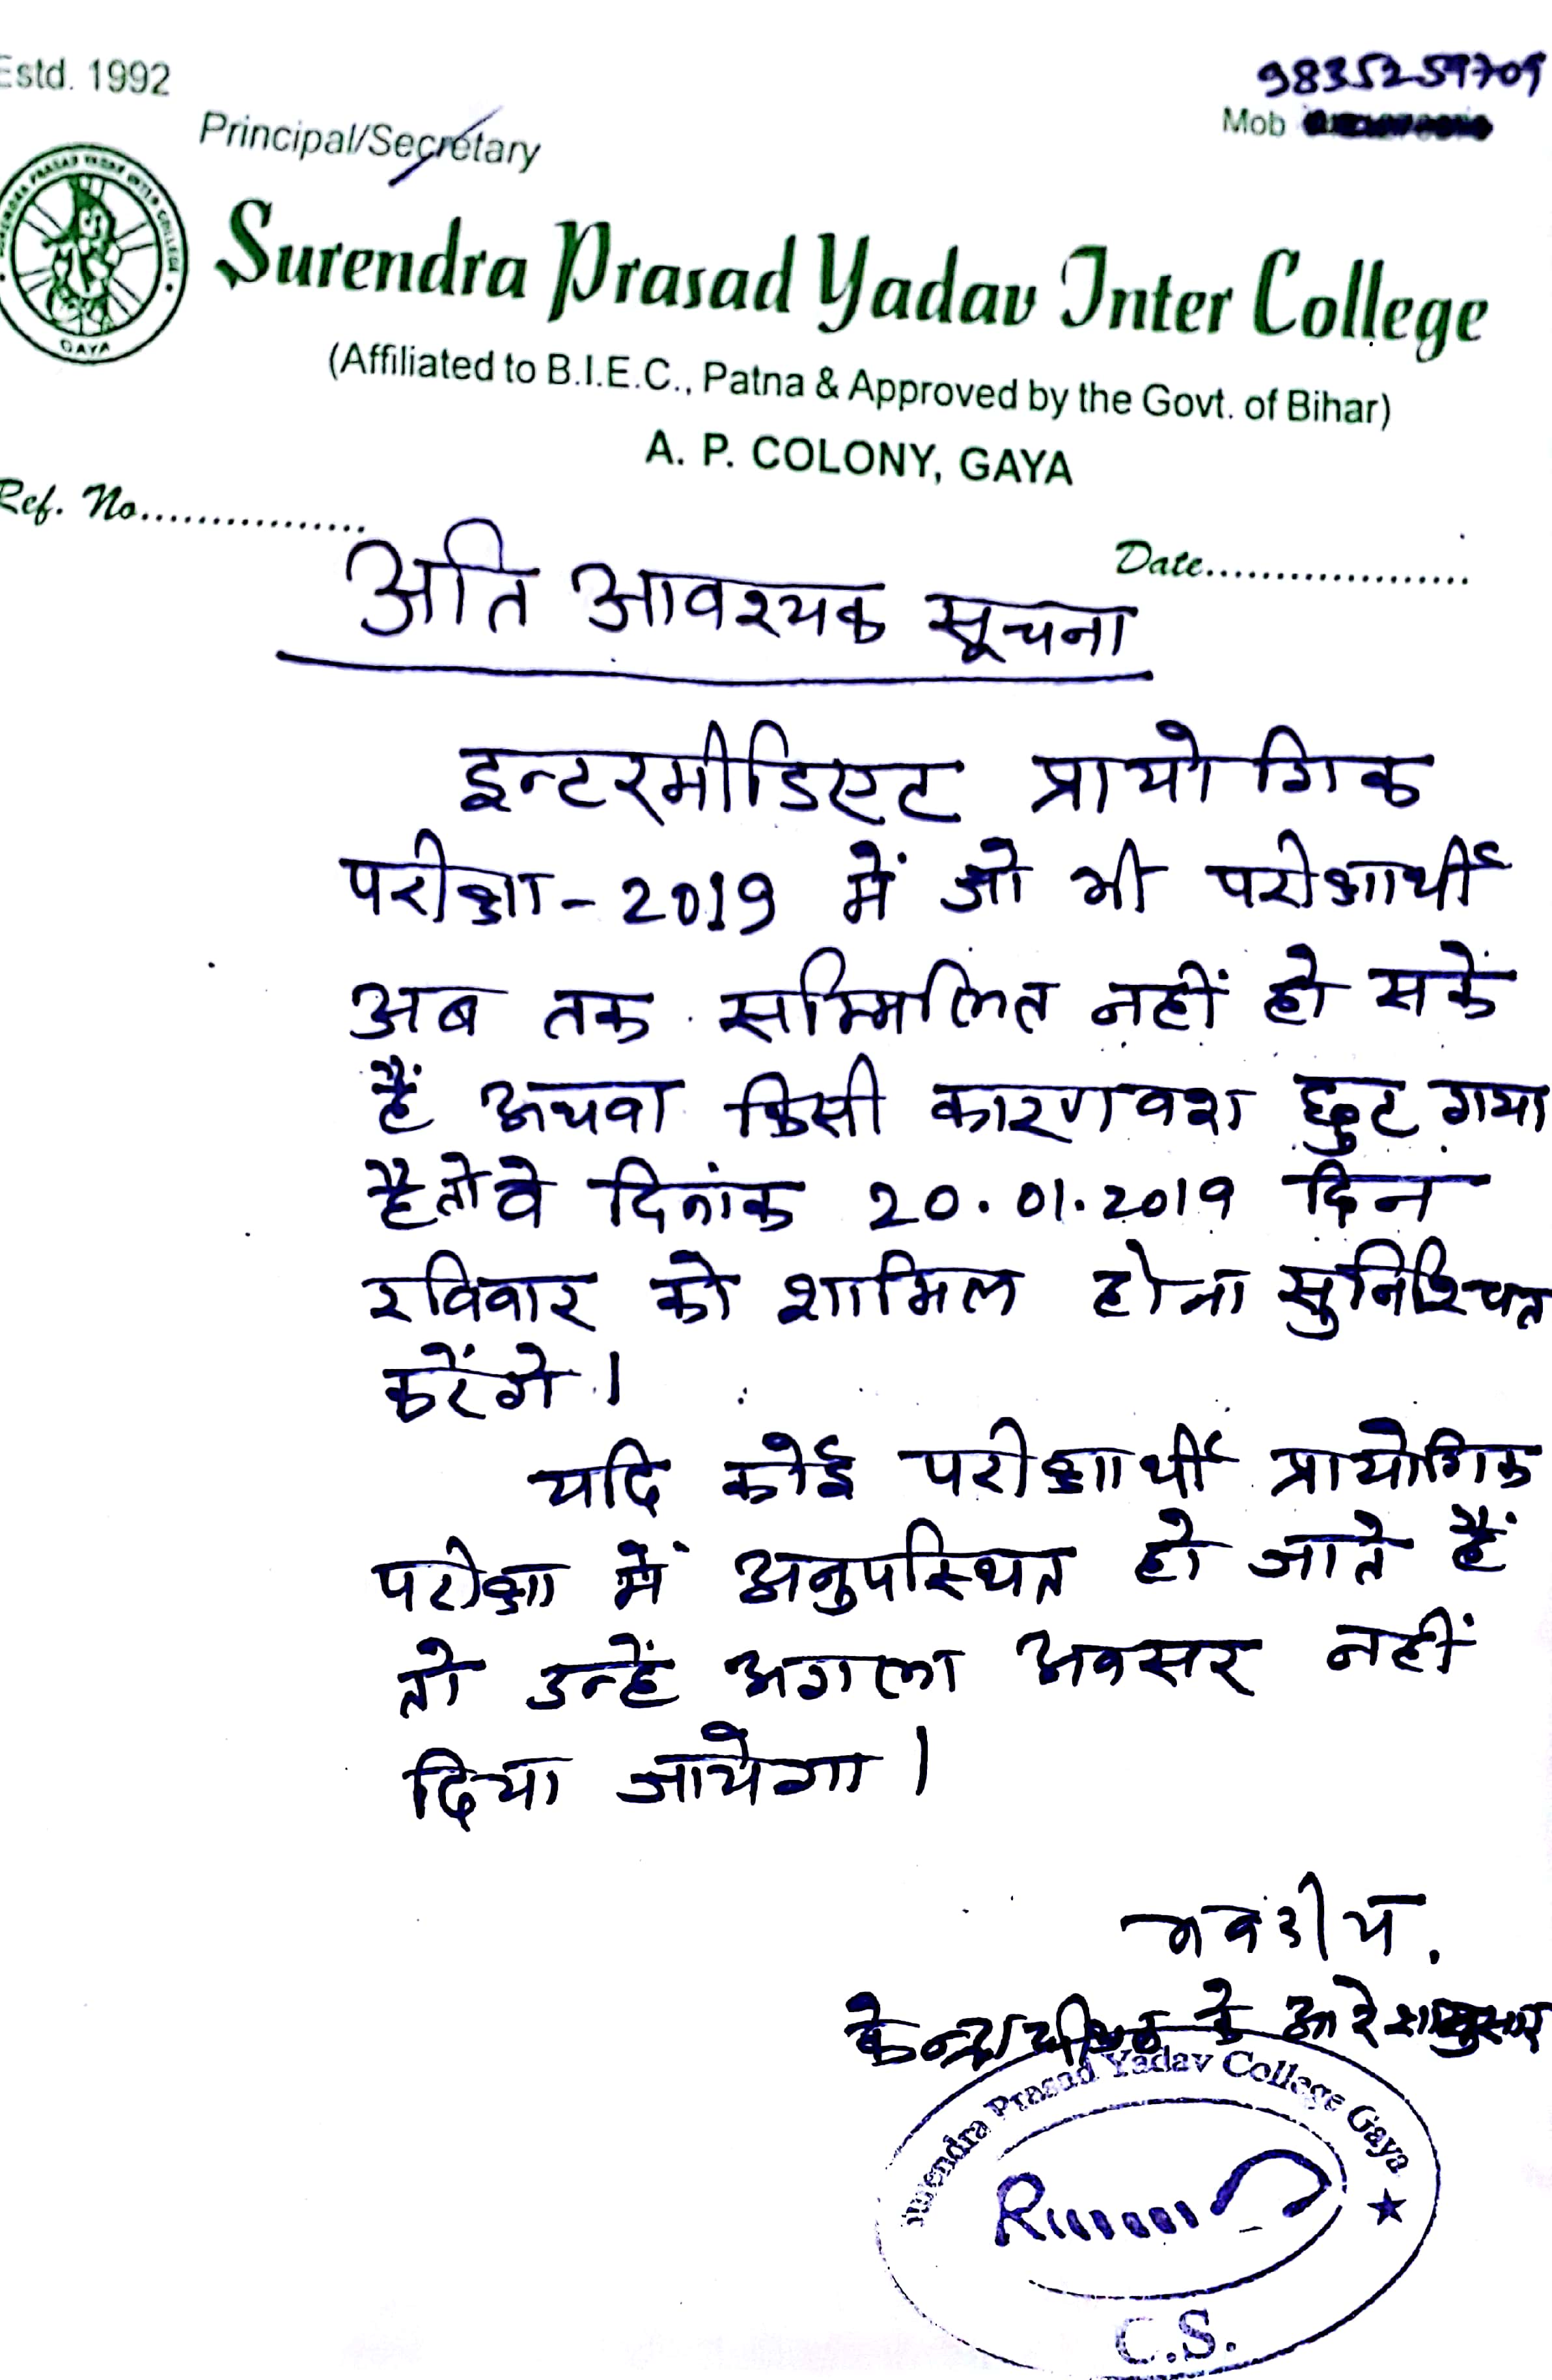 Estd. 1992
9835259709
Mob
Principal/Secretary
SURENDRA PRASAD YADAV INTER COLLEGE
GAYA
Surendra Prasad Yadav Inter College
(Affiliated to B.I.E.C., Patna & Approved by the Govt. of Bihar)
A. P. COLONY, GAYA
Ref. No................
Date...................
अति आवश्यक सूचना
इन्टरमीडिएट प्रायोगिक
परीक्षा-2019 में जो भी परीक्षार्थी
अब तक सम्मिलित नहीं हो सकें
हैं अथवा किसी कारणवश छुट गया
है तो वे दिनांक 20.01.2019 दिन
रविवार को शामिल होना सुनिश्चित
करेंगे।
यदि कोई परीक्षार्थी प्रायोगिक
परीक्षा में अनुपस्थित हो जाते हैं
तो उन्हें अगला अवसर नहीं
दिया जायेगा।
भवदीय.
केन्द्राधीक्षक के आदेशानुसार
Surendra Prasad Yadav College Gaya
C.S.